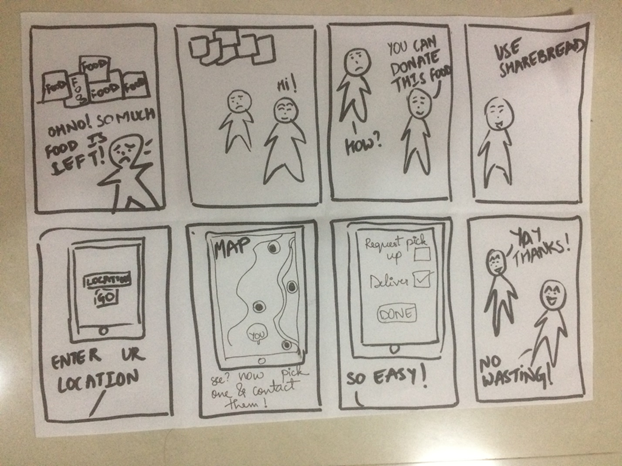 FOOD
FOOD
FOOD
FOOD
FOOD
OH NO! SO MUCH
FOOD IS
LEFT!
Hi!
YOU CAN
DONATE
THIS FOOD
HOW?
USE
SHAREBREAD
LOCATION
GO
ENTER UR
LOCATION
MAP
YOU
see? now pick
one & contact
them!
Request pick
up
Deliver
DONE
SO EASY!
YAY
THANKS!
NO
WASTING!